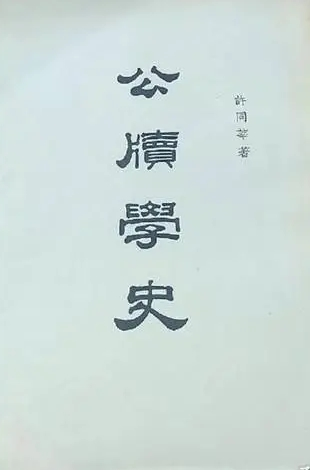 許同莘著
公牘學史